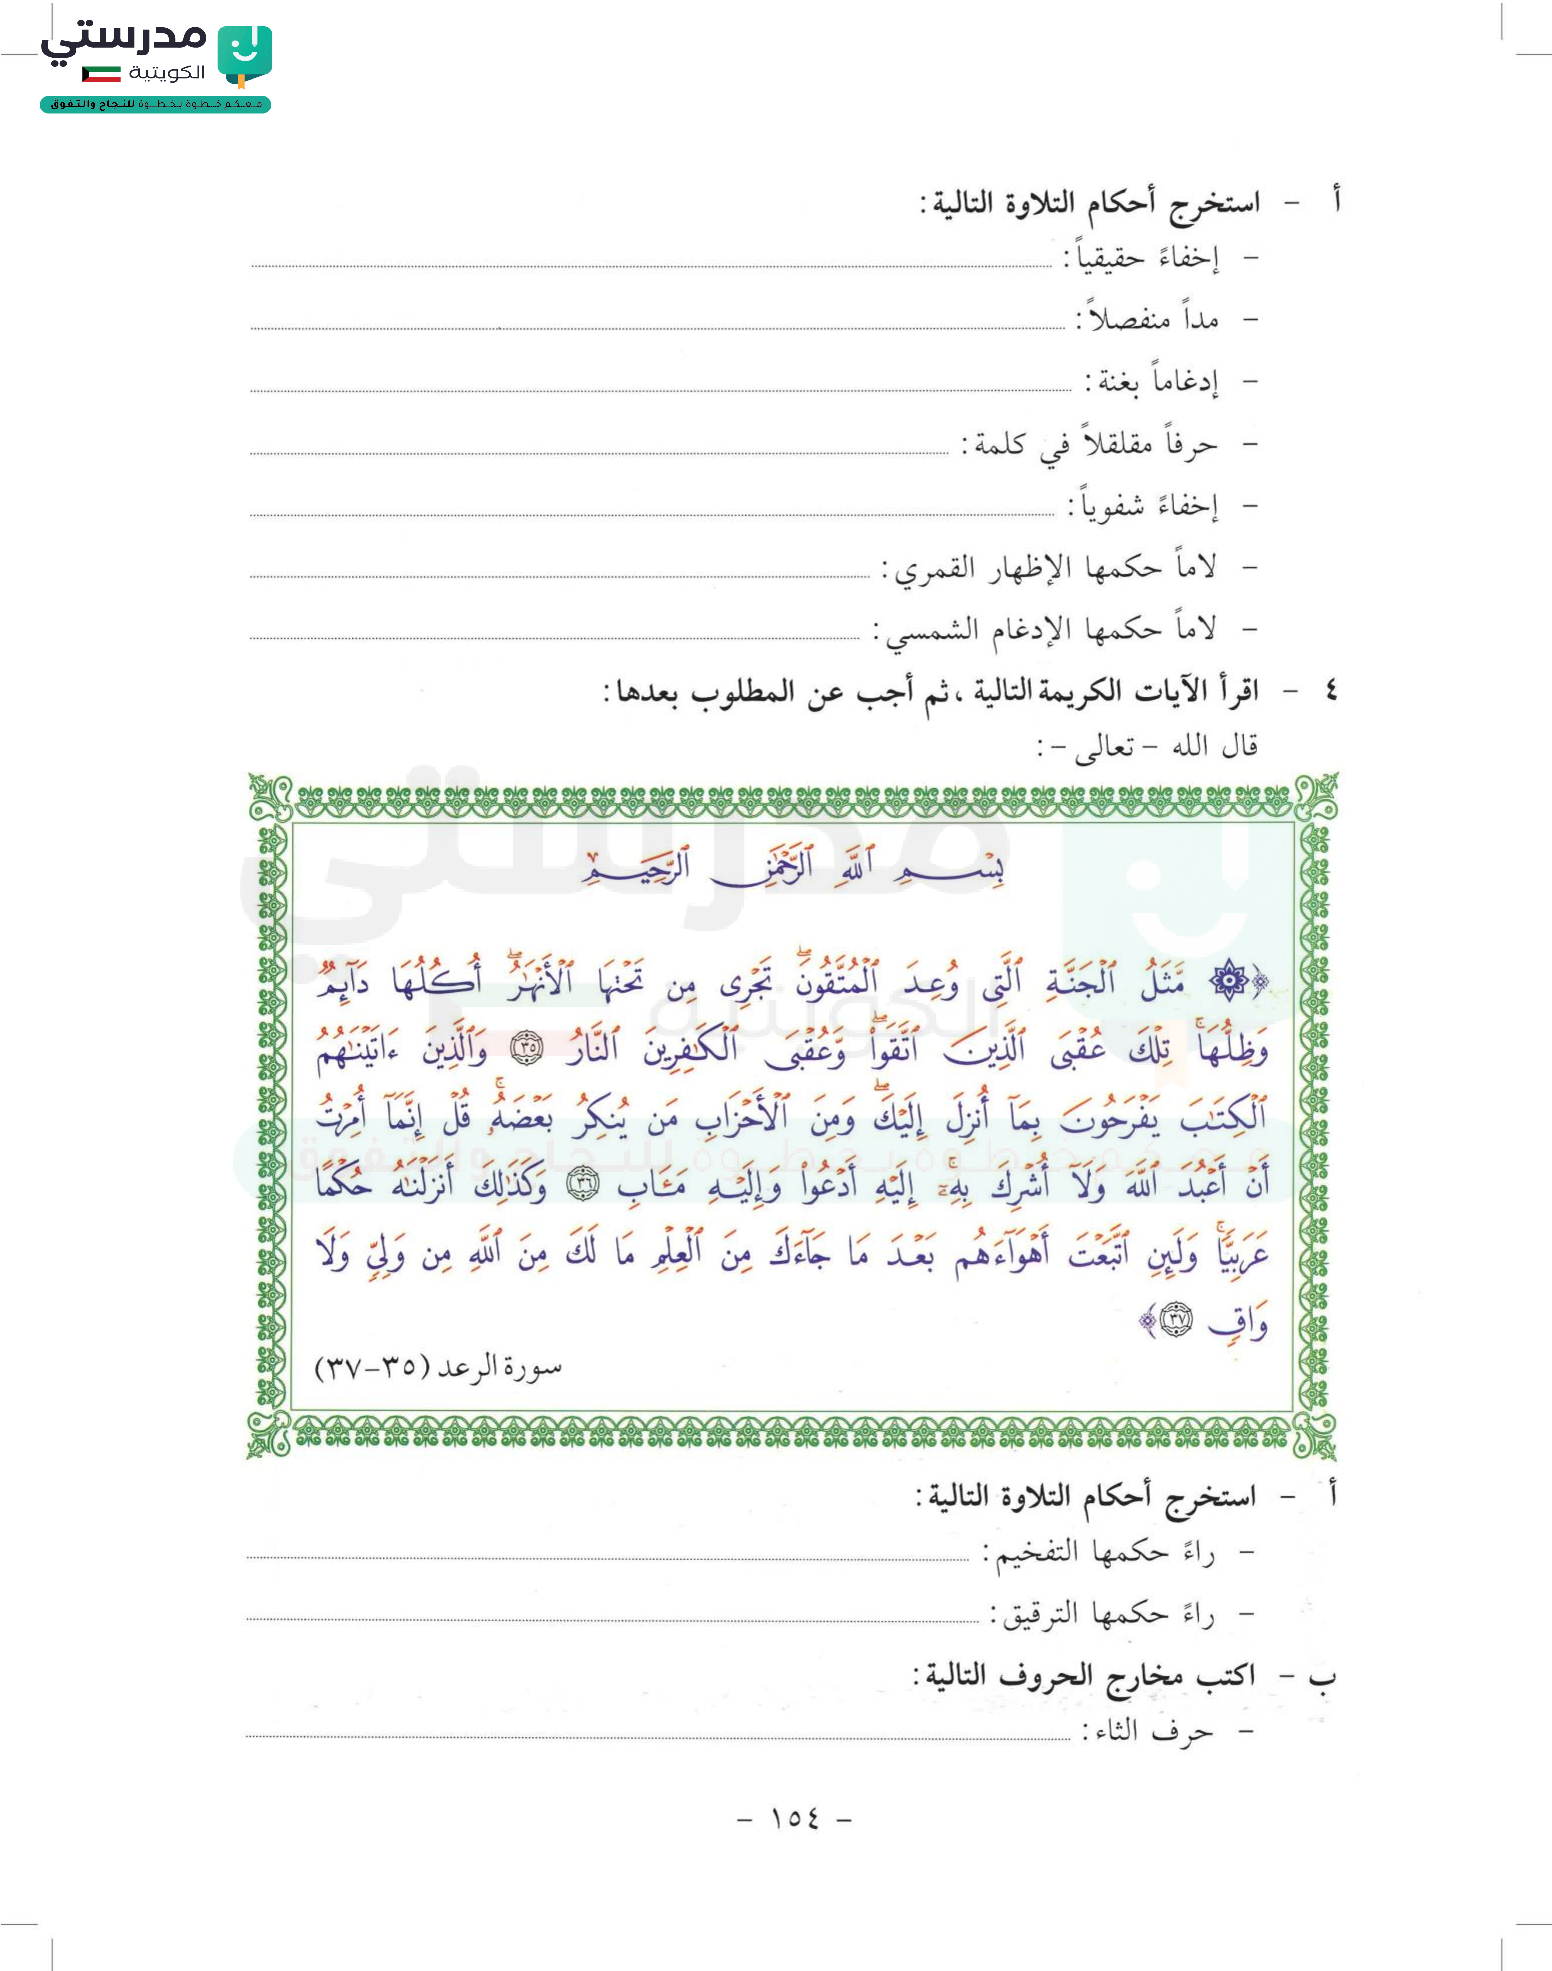 مدرستي
الكويتية
معكم خطوة بخطوة للنجاح والتفوق
أ - استخرج أحكام التلاوة التالية:
- إخفاءً حقيقياً:
- مداً منفصلاً:
- إدغاماً بغنة:
- حرفاً مقلقلاً في كلمة:
- إخفاءً شفوياً:
- لاماً حكمها الإظهار القمري:
- لاماً حكمها الإدغام الشمسي:
٤ - اقرأ الآيات الكريمة التالية، ثم أجب عن المطلوب بعدها:
قال الله - تعالى -:
بِسْمِ ٱللَّهِ ٱلرَّحْمَٰنِ ٱلرَّحِيمِ
﴿۞ مَّثَلُ ٱلْجَنَّةِ ٱلَّتِى وُعِدَ ٱلْمُتَّقُونَۖ تَجْرِى مِن تَحْتِهَا ٱلْأَنْهَٰرُۖ أُكُلُهَا دَآئِمٌ
وَظِلُّهَاۚ تِلْكَ عُقْبَى ٱلَّذِينَ ٱتَّقَوا۟ۖ وَّعُقْبَى ٱلْكَٰفِرِينَ ٱلنَّارُ ٣٥ وَٱلَّذِينَ ءَاتَيْنَٰهُمُ
ٱلْكِتَٰبَ يَفْرَحُونَ بِمَآ أُنزِلَ إِلَيْكَۖ وَمِنَ ٱلْأَحْزَابِ مَن يُنكِرُ بَعْضَهُۥۚ قُلْ إِنَّمَآ أُمِرْتُ
أَنْ أَعْبُدَ ٱللَّهَ وَلَآ أُشْرِكَ بِهِۦٓۚ إِلَيْهِ أَدْعُوا۟ وَإِلَيْهِ مَـَٔابِ ٣٦ وَكَذَٰلِكَ أَنزَلْنَٰهُ حُكْمًا
عَرَبِيًّاۚ وَلَئِنِ ٱتَّبَعْتَ أَهْوَآءَهُم بَعْدَ مَا جَآءَكَ مِنَ ٱلْعِلْمِ مَا لَكَ مِنَ ٱللَّهِ مِن وَلِىٍّ وَلَا
وَاقٍ ٣٧﴾
سورة الرعد (٣٥-٣٧)
أ - استخرج أحكام التلاوة التالية:
- راءً حكمها التفخيم:
- راءً حكمها الترقيق:
ب - اكتب مخارج الحروف التالية:
- حرف الثاء:
- ١٥٤ -